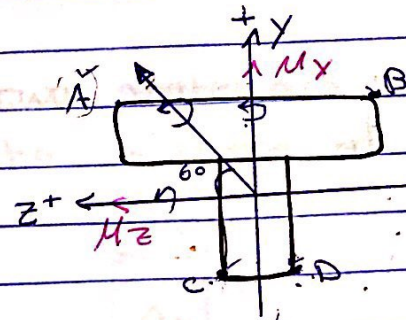 +
Y
Mx
A
B
60
Z+
Mz
C
D